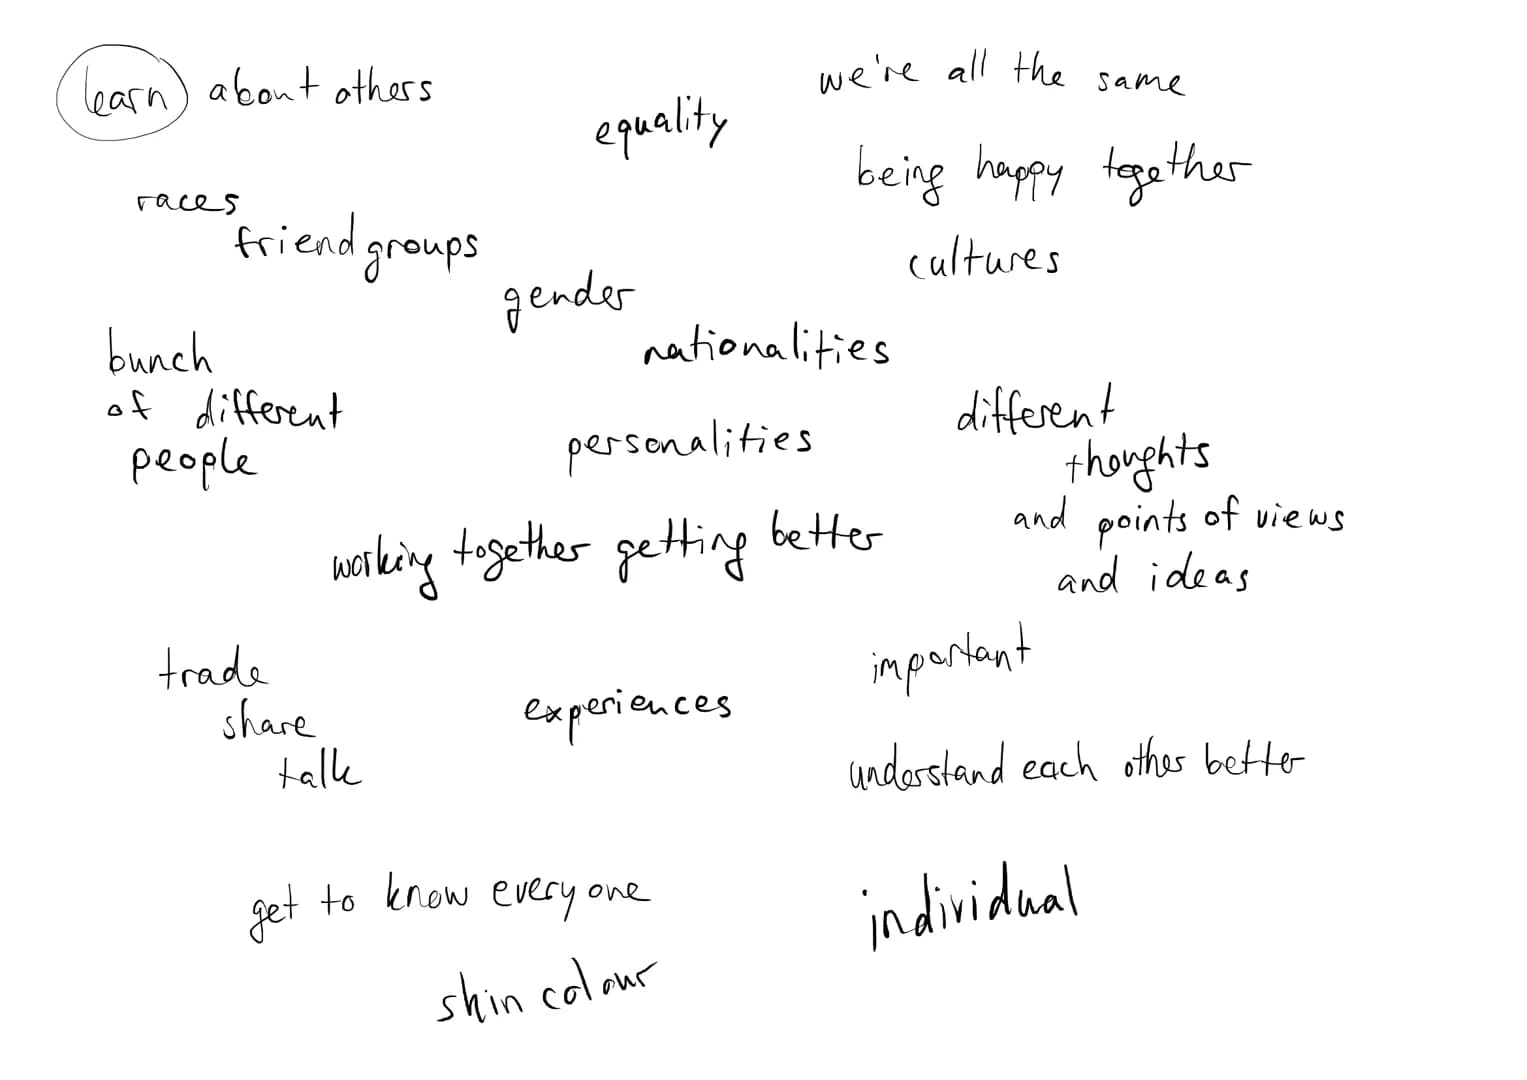 learn about others
we're all the same
equality
being happy together
races
friend groups
cultures
gender
nationalities
bunch
of different
people
different
thoughts
and points of views
and ideas
personalities
working together getting better
trade
share
talk
experiences
important
understand each other better
get to know everyone
individual
skin colour